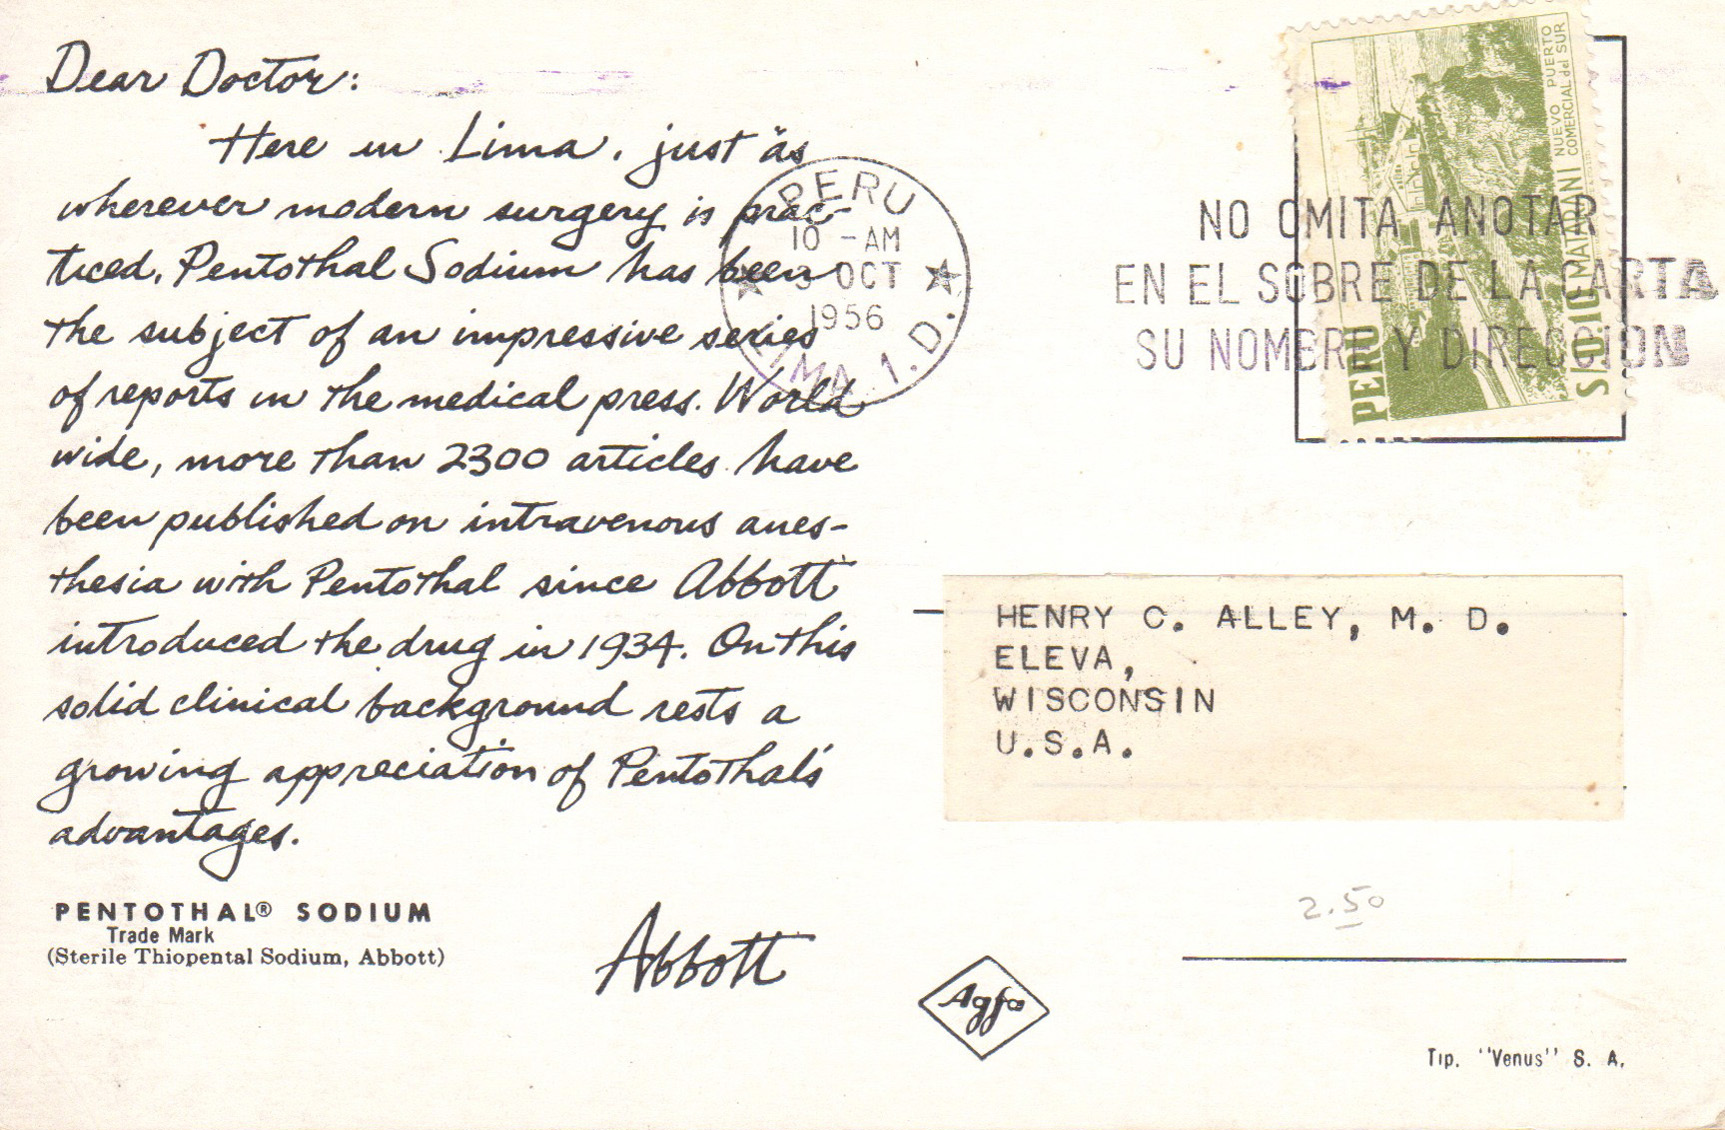 Dear Doctor:
Here in Lima, just as
wherever modern surgery is prac-
ticed, Pentothal Sodium has been
the subject of an impressive series
of reports in the medical press. World
wide, more than 2300 articles have
been published on intravenous anes-
thesia with Pentothal since Abbott
introduced the drug in 1934. On this
solid clinical background rests a
growing appreciation of Pentothal's
advantages.
PENTOTHAL® SODIUM
Trade Mark
(Sterile Thiopental Sodium, Abbott)
Abbott
PERU
10 - AM
OCT
1956
LIMA 1. D.
NO OMITA ANOTAR
EN EL SOBRE DE LA CARTA
SU NOMBRE Y DIRECCION
NUEVO PUERTO
COMERCIAL del SUR
MATARANI
PERU
S/O.10
HENRY C. ALLEY, M. D.
ELEVA,
WISCONSIN
U.S.A.
2.50
Agfa
Tip. "Venus" S. A.